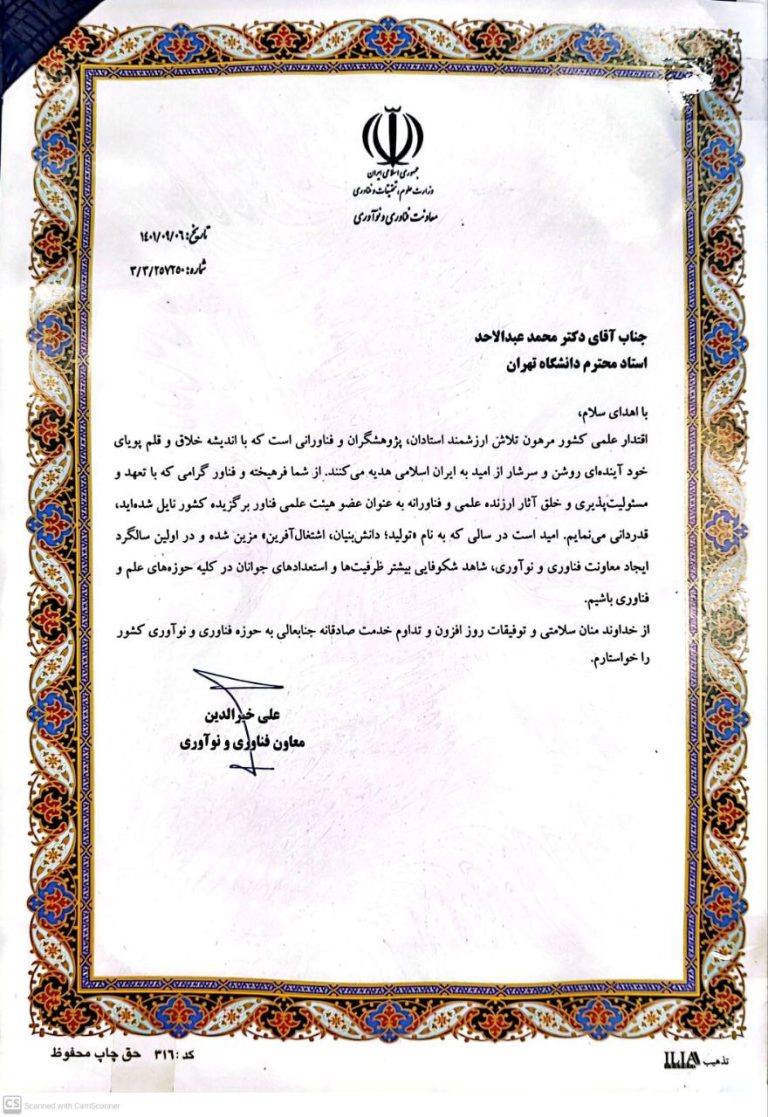 جمهوری اسلامی ایران
وزارت علوم، تحقیقات و فناوری
معاونت فناوری و نوآوری
تاریخ: ۱۴۰۱/۰۹/۰۶
شماره: ۳/۳/۲۵۷۲۵۰
جناب آقای دکتر محمد عبدالاحد
استاد محترم دانشگاه تهران
با اهدای سلام،
اقتدار علمی کشور مرهون تلاش ارزشمند استادان، پژوهشگران و فناورانی است که با اندیشه خلاق و قلم پویای
خود آینده‌ای روشن و سرشار از امید به ایران اسلامی هدیه می‌کنند. از شما فرهیخته و فناور گرامی که با تعهد و
مسئولیت‌پذیری و خلق آثار ارزنده علمی و فناورانه به عنوان عضو هیئت علمی فناور برگزیده کشور نایل شده‌اید،
قدردانی می‌نمایم. امید است در سالی که به نام «تولید؛ دانش‌بنیان، اشتغال‌آفرین» مزین شده و در اولین سالگرد
ایجاد معاونت فناوری و نوآوری، شاهد شکوفایی بیشتر ظرفیت‌ها و استعدادهای جوانان در کلیه حوزه‌های علم و
فناوری باشیم.
از خداوند منان سلامتی و توفیقات روز افزون و تداوم خدمت صادقانه جنابعالی به حوزه فناوری و نوآوری کشور
را خواستارم.
علی خیرالدین
معاون فناوری و نوآوری
تذهیب
کد: ۳۱۶ حق چاپ محفوظ
CS Scanned with CamScanner